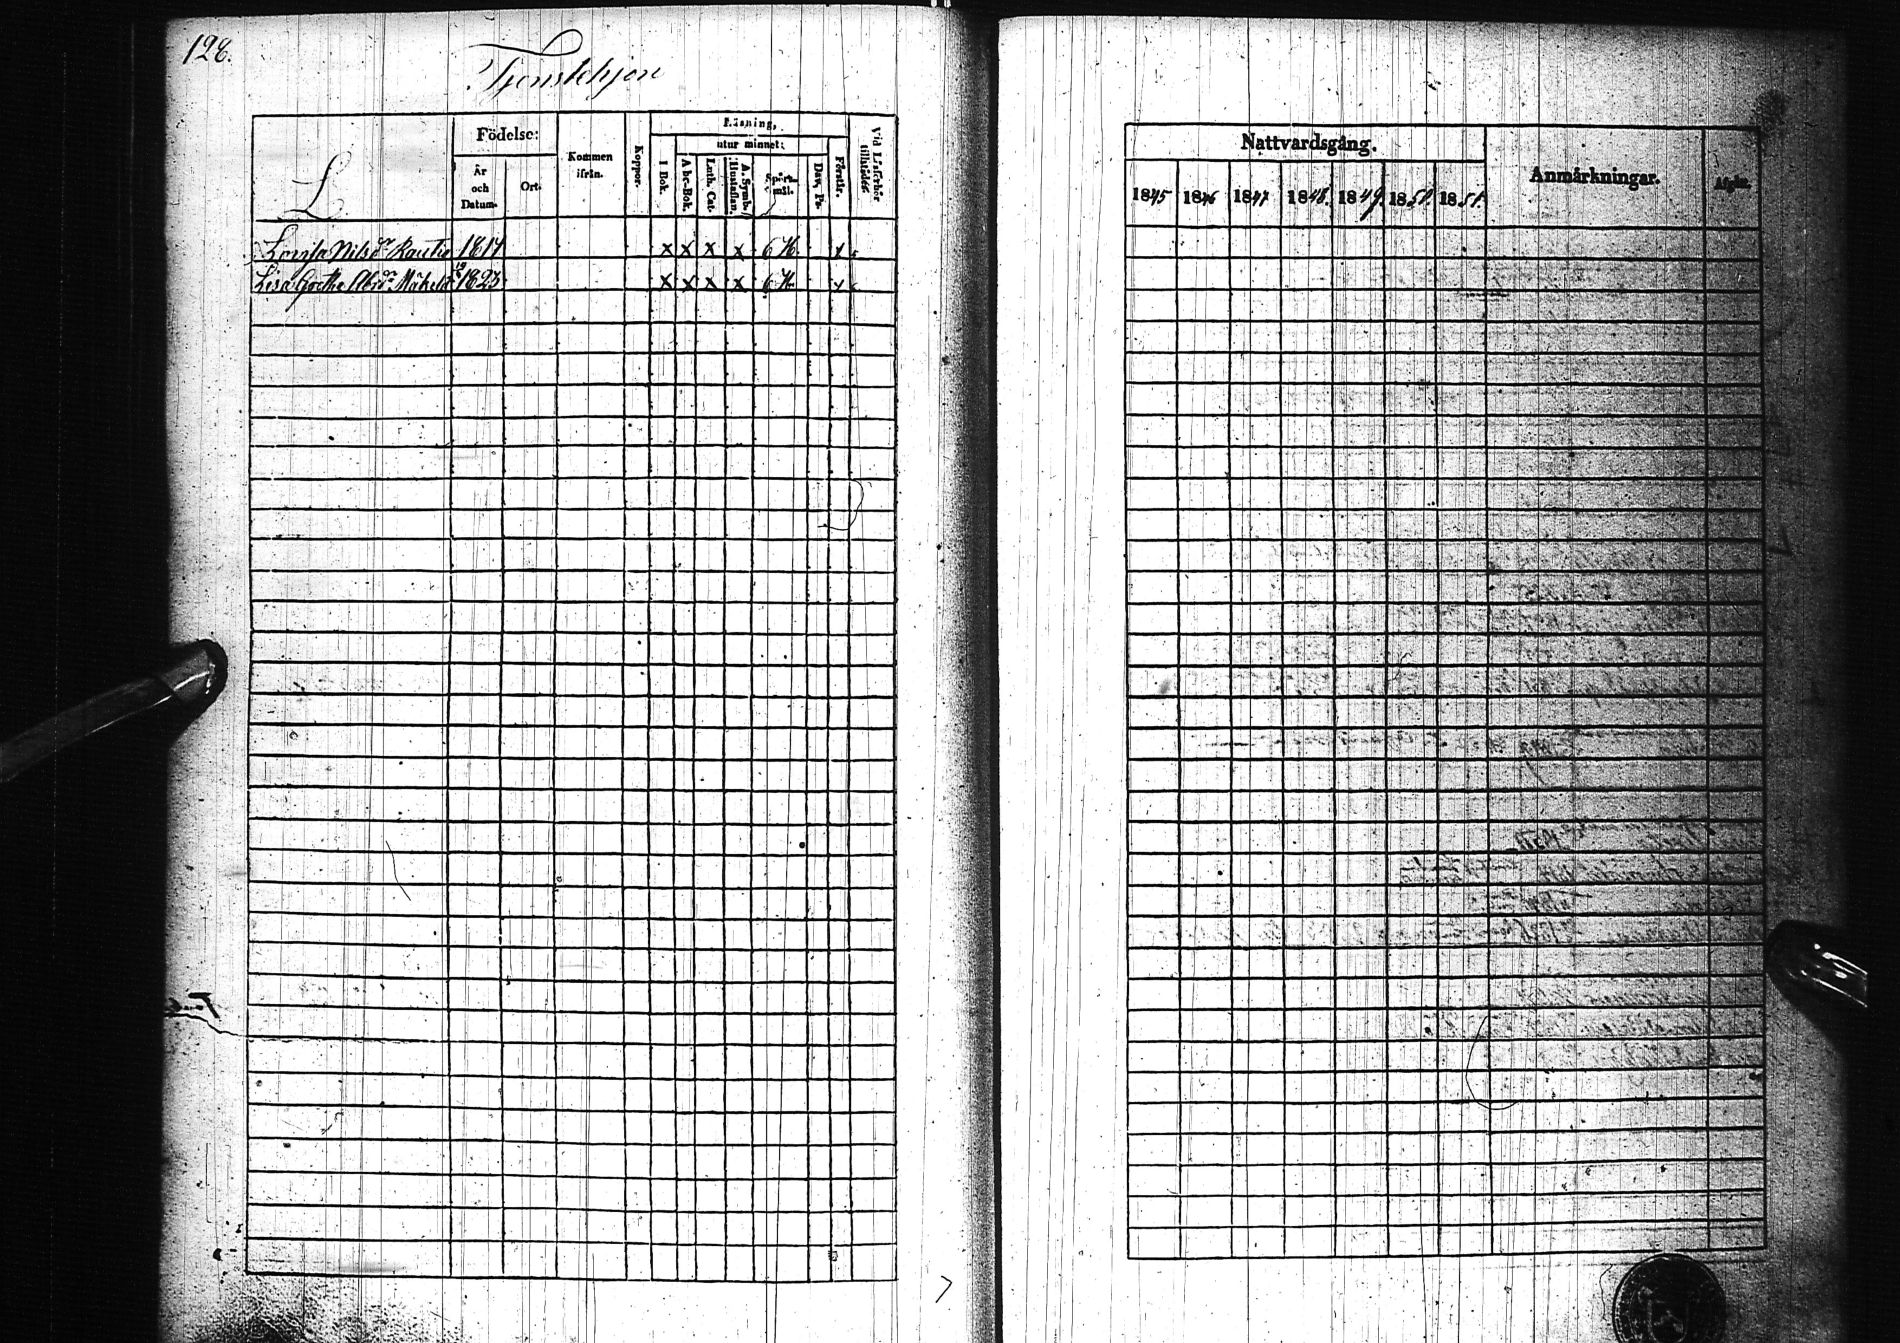 128.
Tjenstehjon
L
Födelse:
År och Datum.
Ort.
Kommen ifrån.
Koppor.
Läsning,
utur minnet:
I Bok.
Abc-Bok.
Luth. Cat.
A. Symb. Hustaflan.
Spörs-mål.
Dav. Ps.
Förstår.
Vid Läseförhör tillstädes.
Lovisa Nilsdr Rautio 1814 x x x x 6 H. x
Lisa Greta Abrdr Mäkelä 1823 x x x x 6 H. x
Nattvardsgång.
1845 1846 1847 1848. 1849. 1850. 1851.
Anmärkningar.
Afgån.